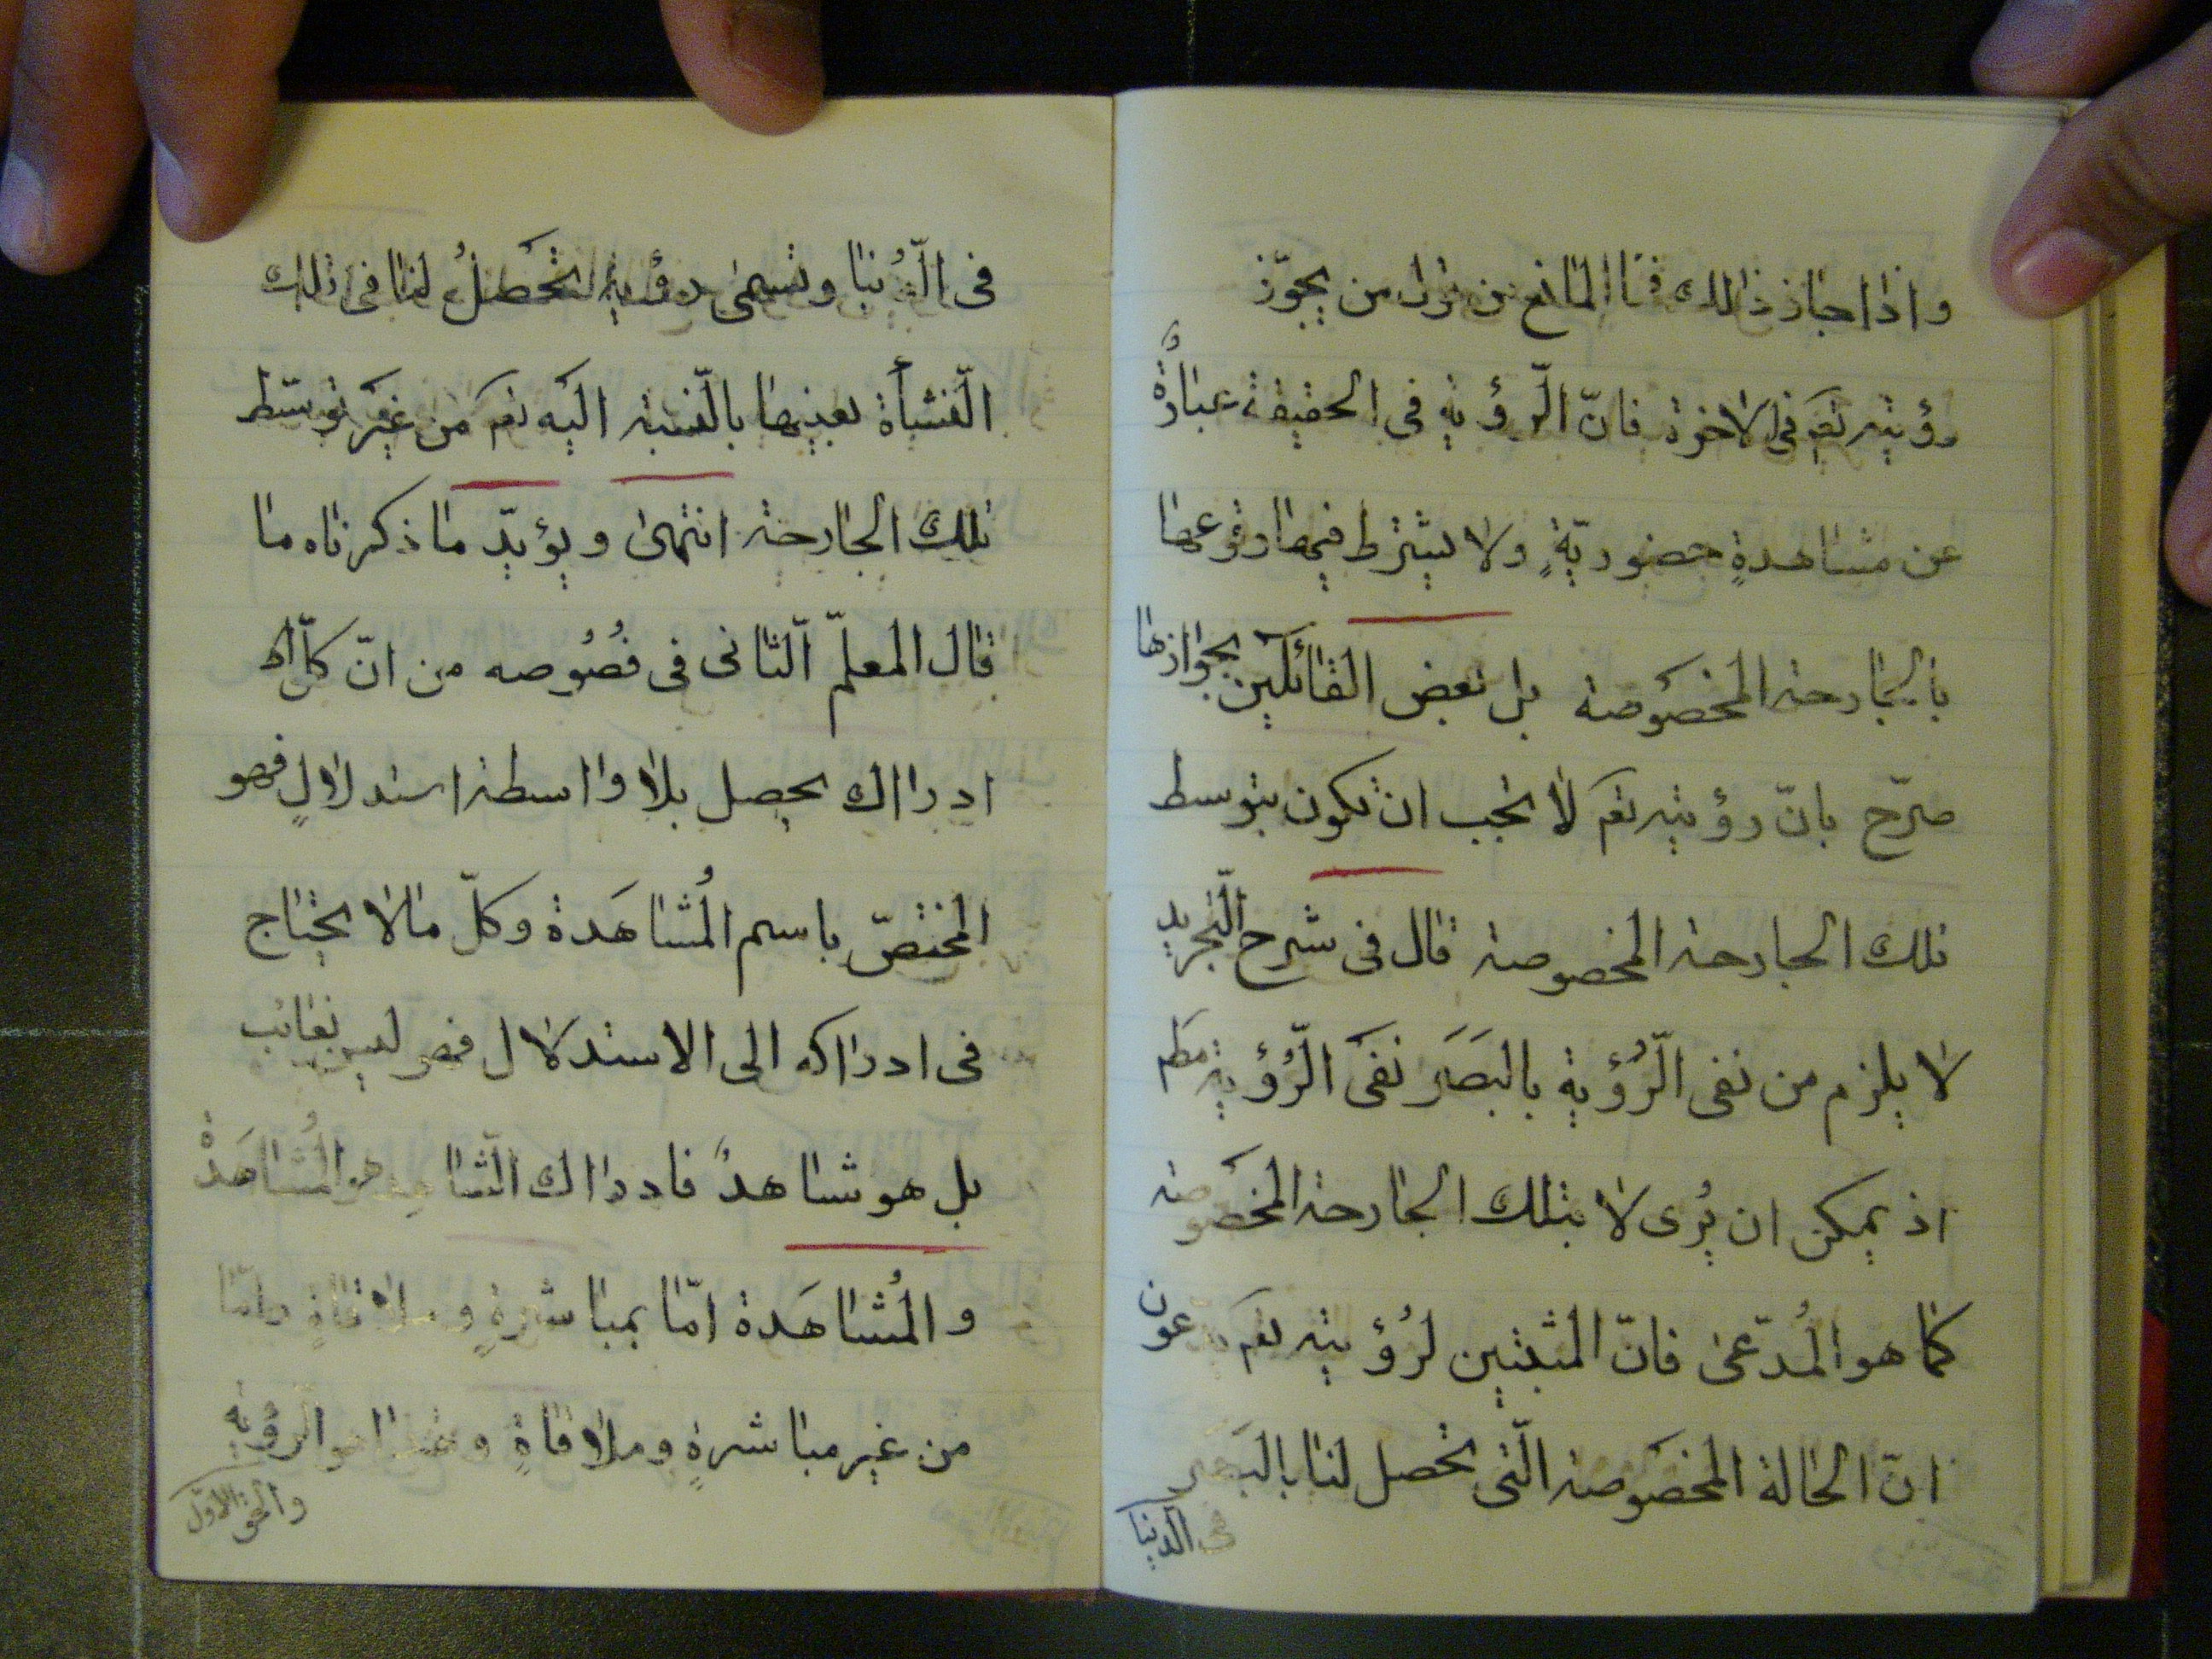 واذا جاز ذالك فما المانع من قول من يجوّز
رؤيته تعم فى الاخرة فانّ الرّؤية فى الحقيقة عبارةٌ
عن مشاهدةٍ حضوريّةٍ ولا يشترط فيها وقوعها
بالجارحة المخصوصة بل بعض القائلين بجوازها
صرّح بانّ رؤيته تعم لا تجب ان تكون بتوسط
تلك الجارحة المخصوصة قال فى شرح التّجريد
لا يلزم من نفى الرُّؤية بالبصَر نفىَ الرُّؤية مطم
اذ يمكن ان يُرى لا بتلك الجارحة المخصوصة
كما هو المُدّعى فانّ المثبتين لرُؤيته تعم يدعون
انّ الحالة المخصوصة الّتى تحصل لنا بالبَصر
فى الدنيا
فى الدُّنيا وتسمى رؤية تحصلُ لنا فى تلك
النّشأة بعينها بالنّسبة اليه تعم من غير توسّط
تلك الجارحة انتهى ويؤيّد ما ذكرناه ما
قال المعلّم الثّانى فى فصُوصه من انّ كلّ
ادرااك يحصل بلا وااسطة استدلالٍ فهو
المختصّ باسم المُشاهَدة وكلّ مالا يحتاج
فى ادرااكه الى الاستدلال فهو ليس بغائب
بل هو شاهدٌ فادرااك الشّاهد هو المُشاهَدةُ
والمُشاهَدة امّا بمباشرةٍ وملاقاةٍ وامّا
من غير مباشرةٍ وملاقاةٍ وهذا هو الرؤية
والحق الاوّل